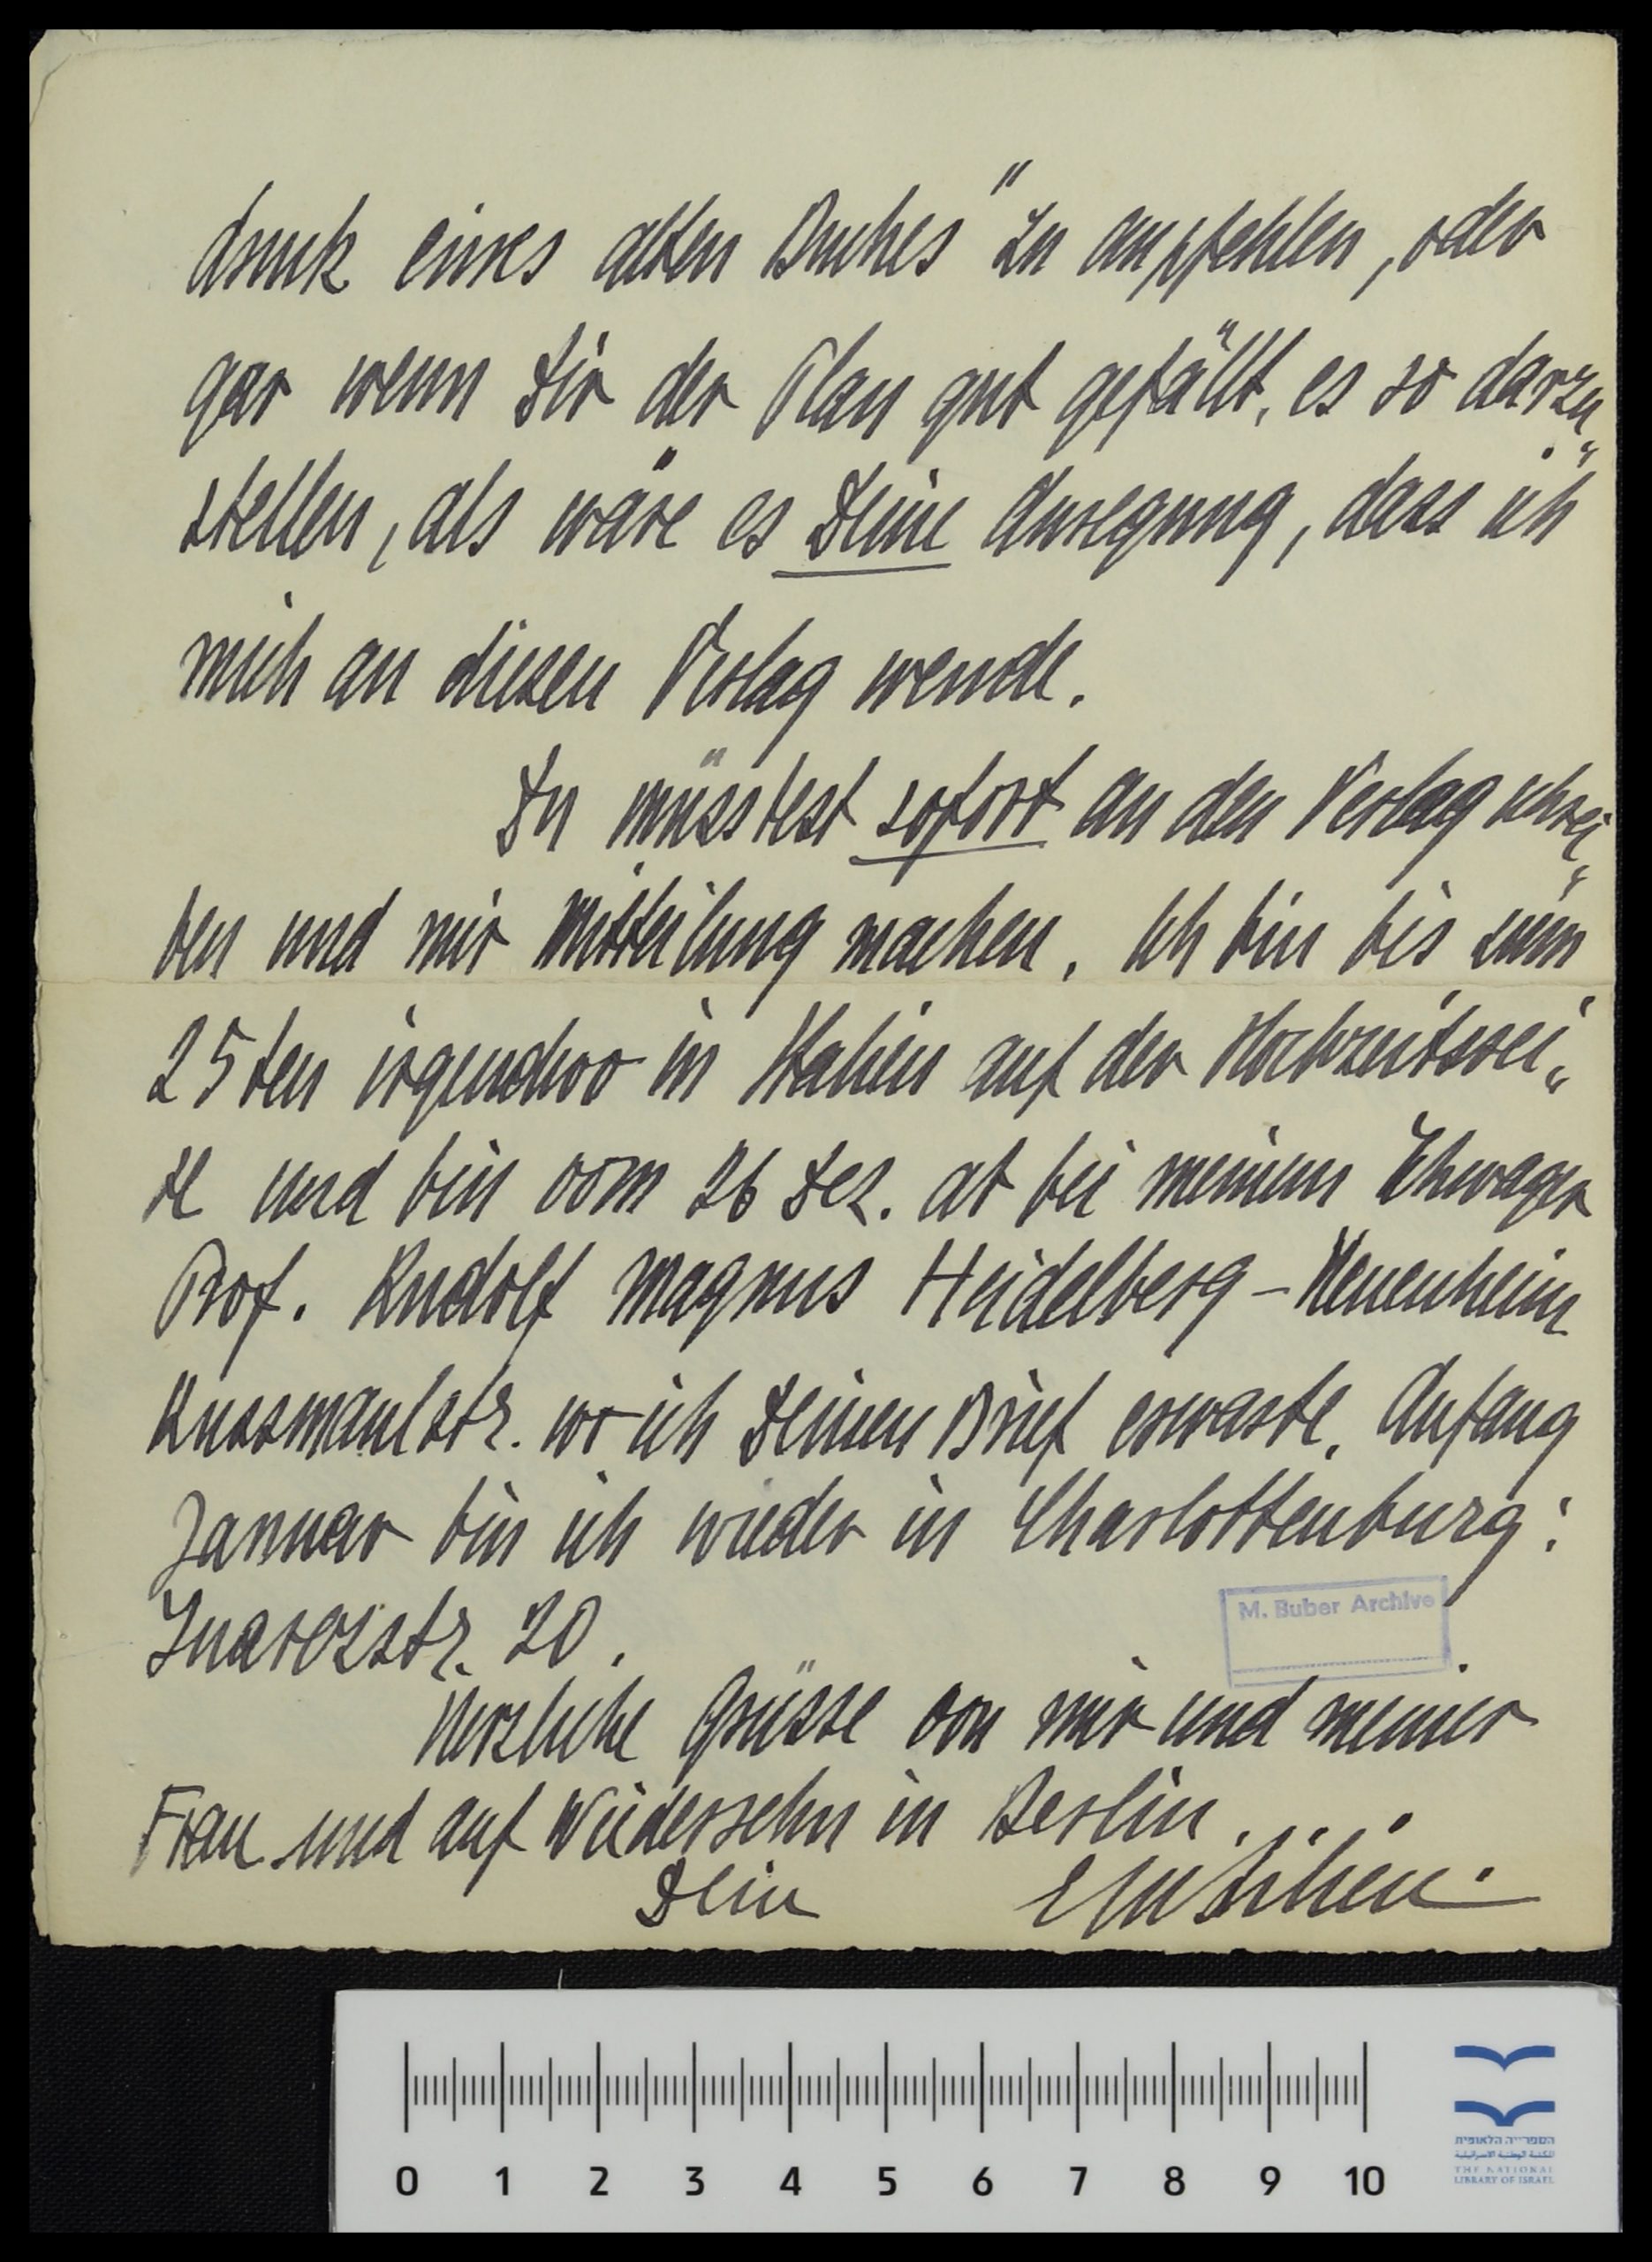 druck eines alten Buches" zu empfehlen, oder
gar wenn Dir der Plan gut gefällt, es so darzu„
stellen, als wäre es Deine Anregung, dass ich
mich an diesen Verlag wende.
Du müsstest sofort an den Verlag schrei„
ben und mir Mitteilung machen. Ich bin bis zum
25ten irgendwo in Italien auf der Hochzeitsrei„
se und bin vom 26 Dez. ab bei meinem Schwager
Prof. Rudolf Magnus Heidelberg - Neuenheim
Kussmaulstr. wo ich Deinen Brief erwarte. Anfang
Januar bin ich wieder in Charlottenburg:
Suarezstr. 20.
M. Buber Archive
Herzliche Grüsse von mir und meiner
Frau und auf Wiedersehn in Berlin.
Dein EMLilien.
0 1 2 3 4 5 6 7 8 9 10
הספרייה הלאומית
THE NATIONAL
LIBRARY OF ISRAEL